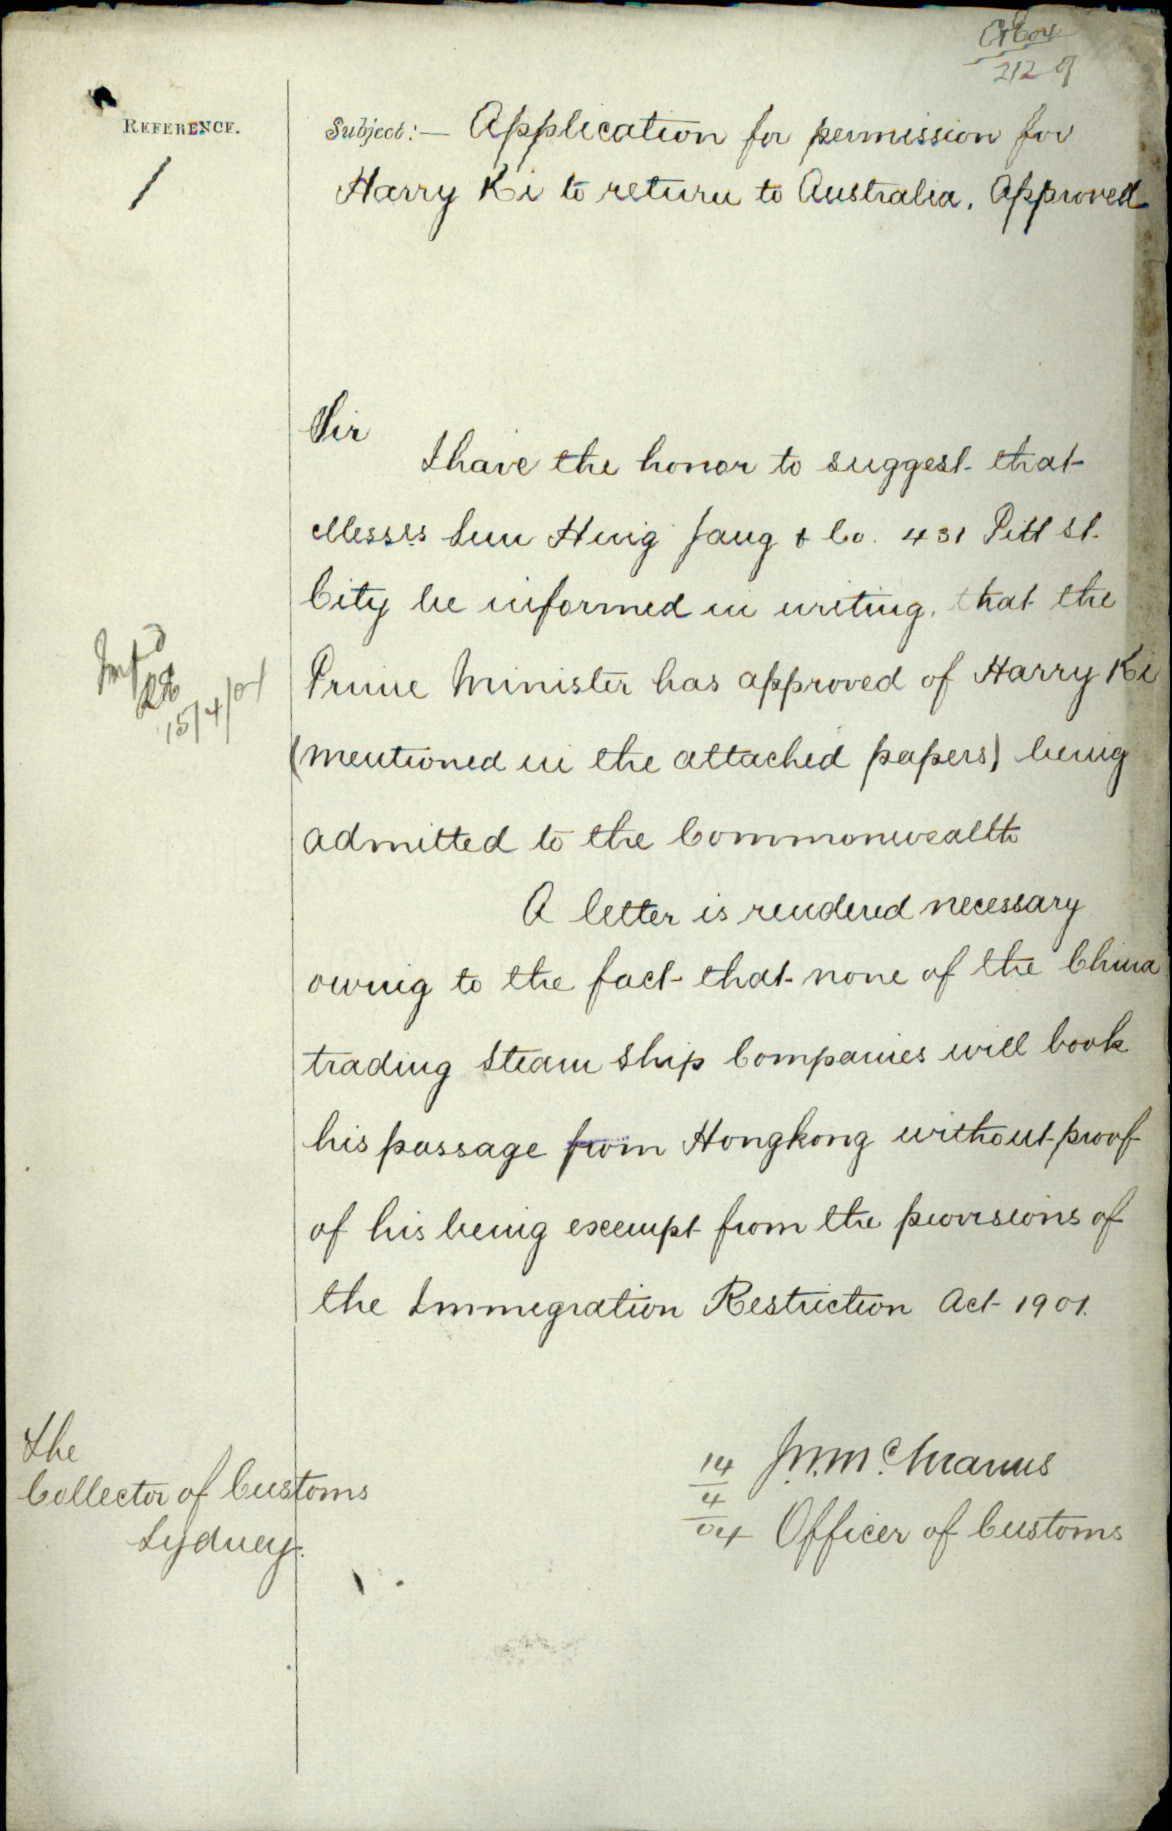 212
REFERENCE.
Subject:— Application for permission for
Harry Ki to return to Australia. Approved
Sir
I have the honor to suggest that
Messrs Sun Hing Jang & Co. 431 Pitt St.
City be informed in writing, that the
Prime Minister has approved of Harry Ki
(mentioned in the attached papers) being
admitted to the Commonwealth
A letter is rendered necessary
owing to the fact that none of the China
trading Steam Ship Companies will book
his passage from Hongkong without proof
of his being exempt from the provisions of
the Immigration Restriction Act 1901.
15/4/04
The
Collector of Customs
Sydney.
14/4/04
J.W. McManus
Officer of Customs